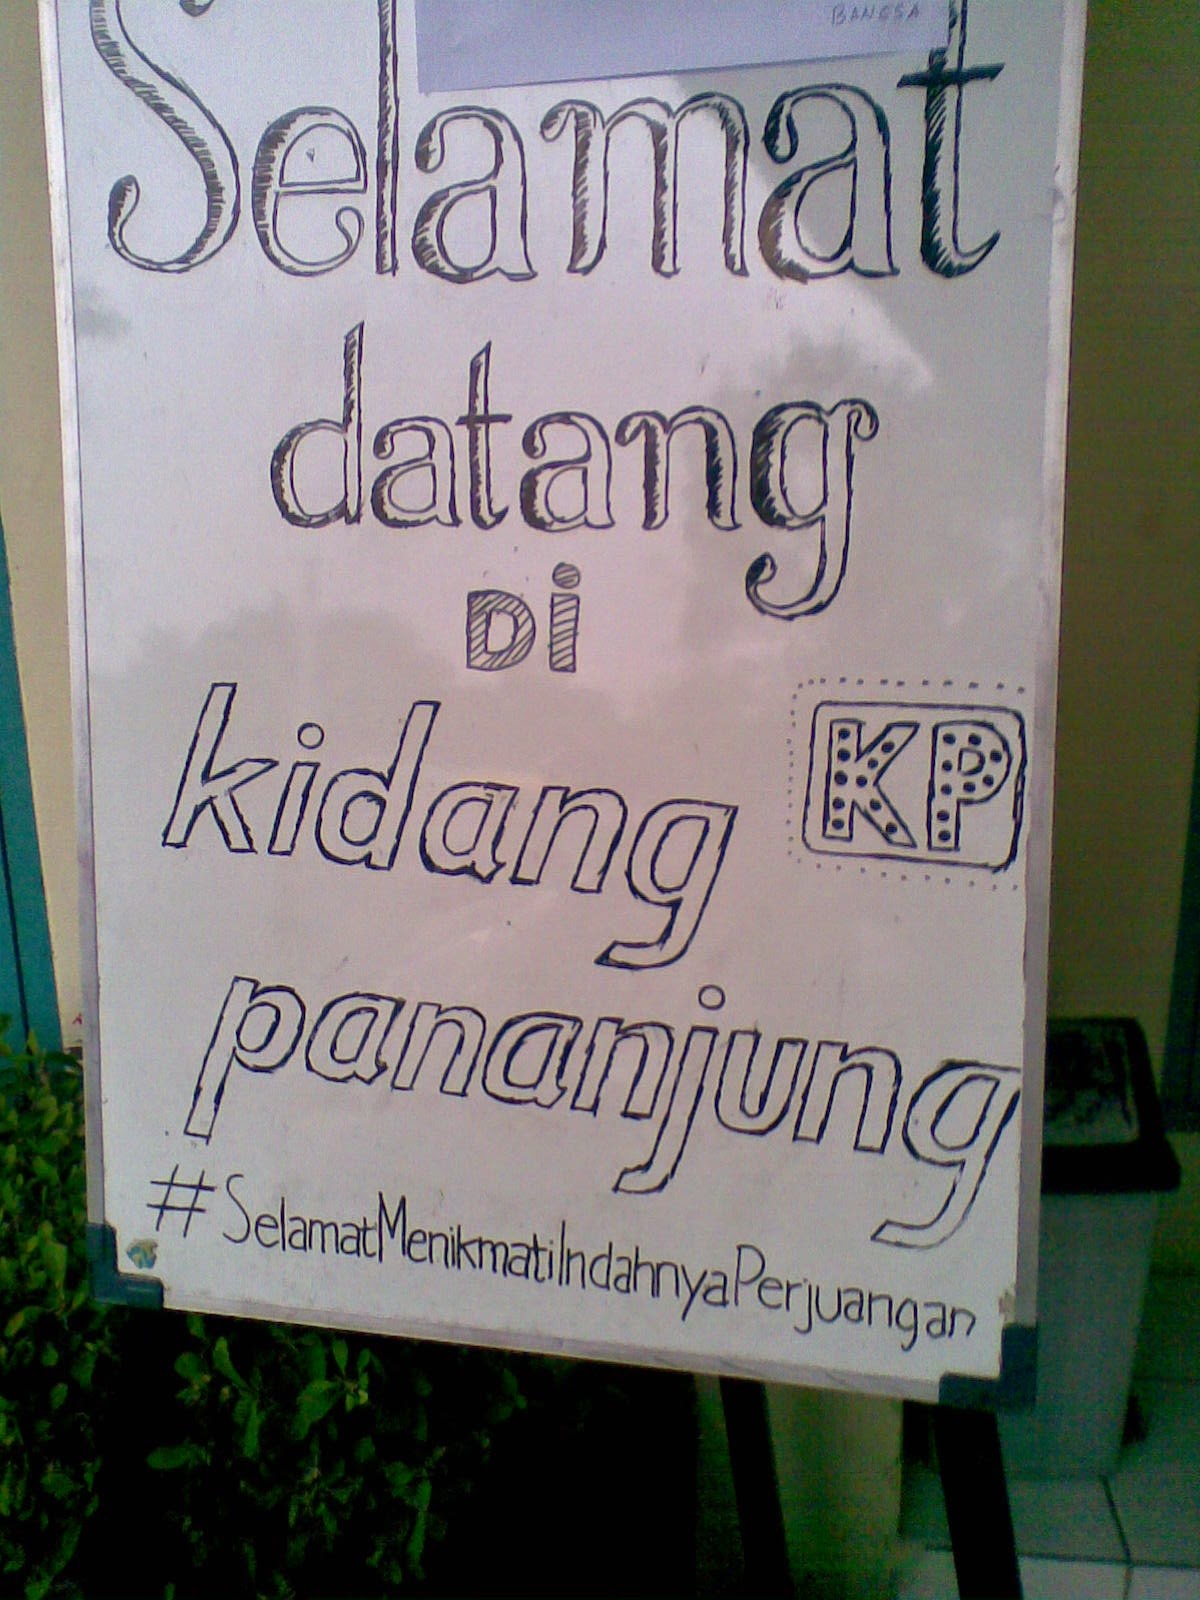 BANGSA
Selamat
datang
Di
kidang
KP
pananjung
#SelamatMenikmatiIndahnyaPerjuangan